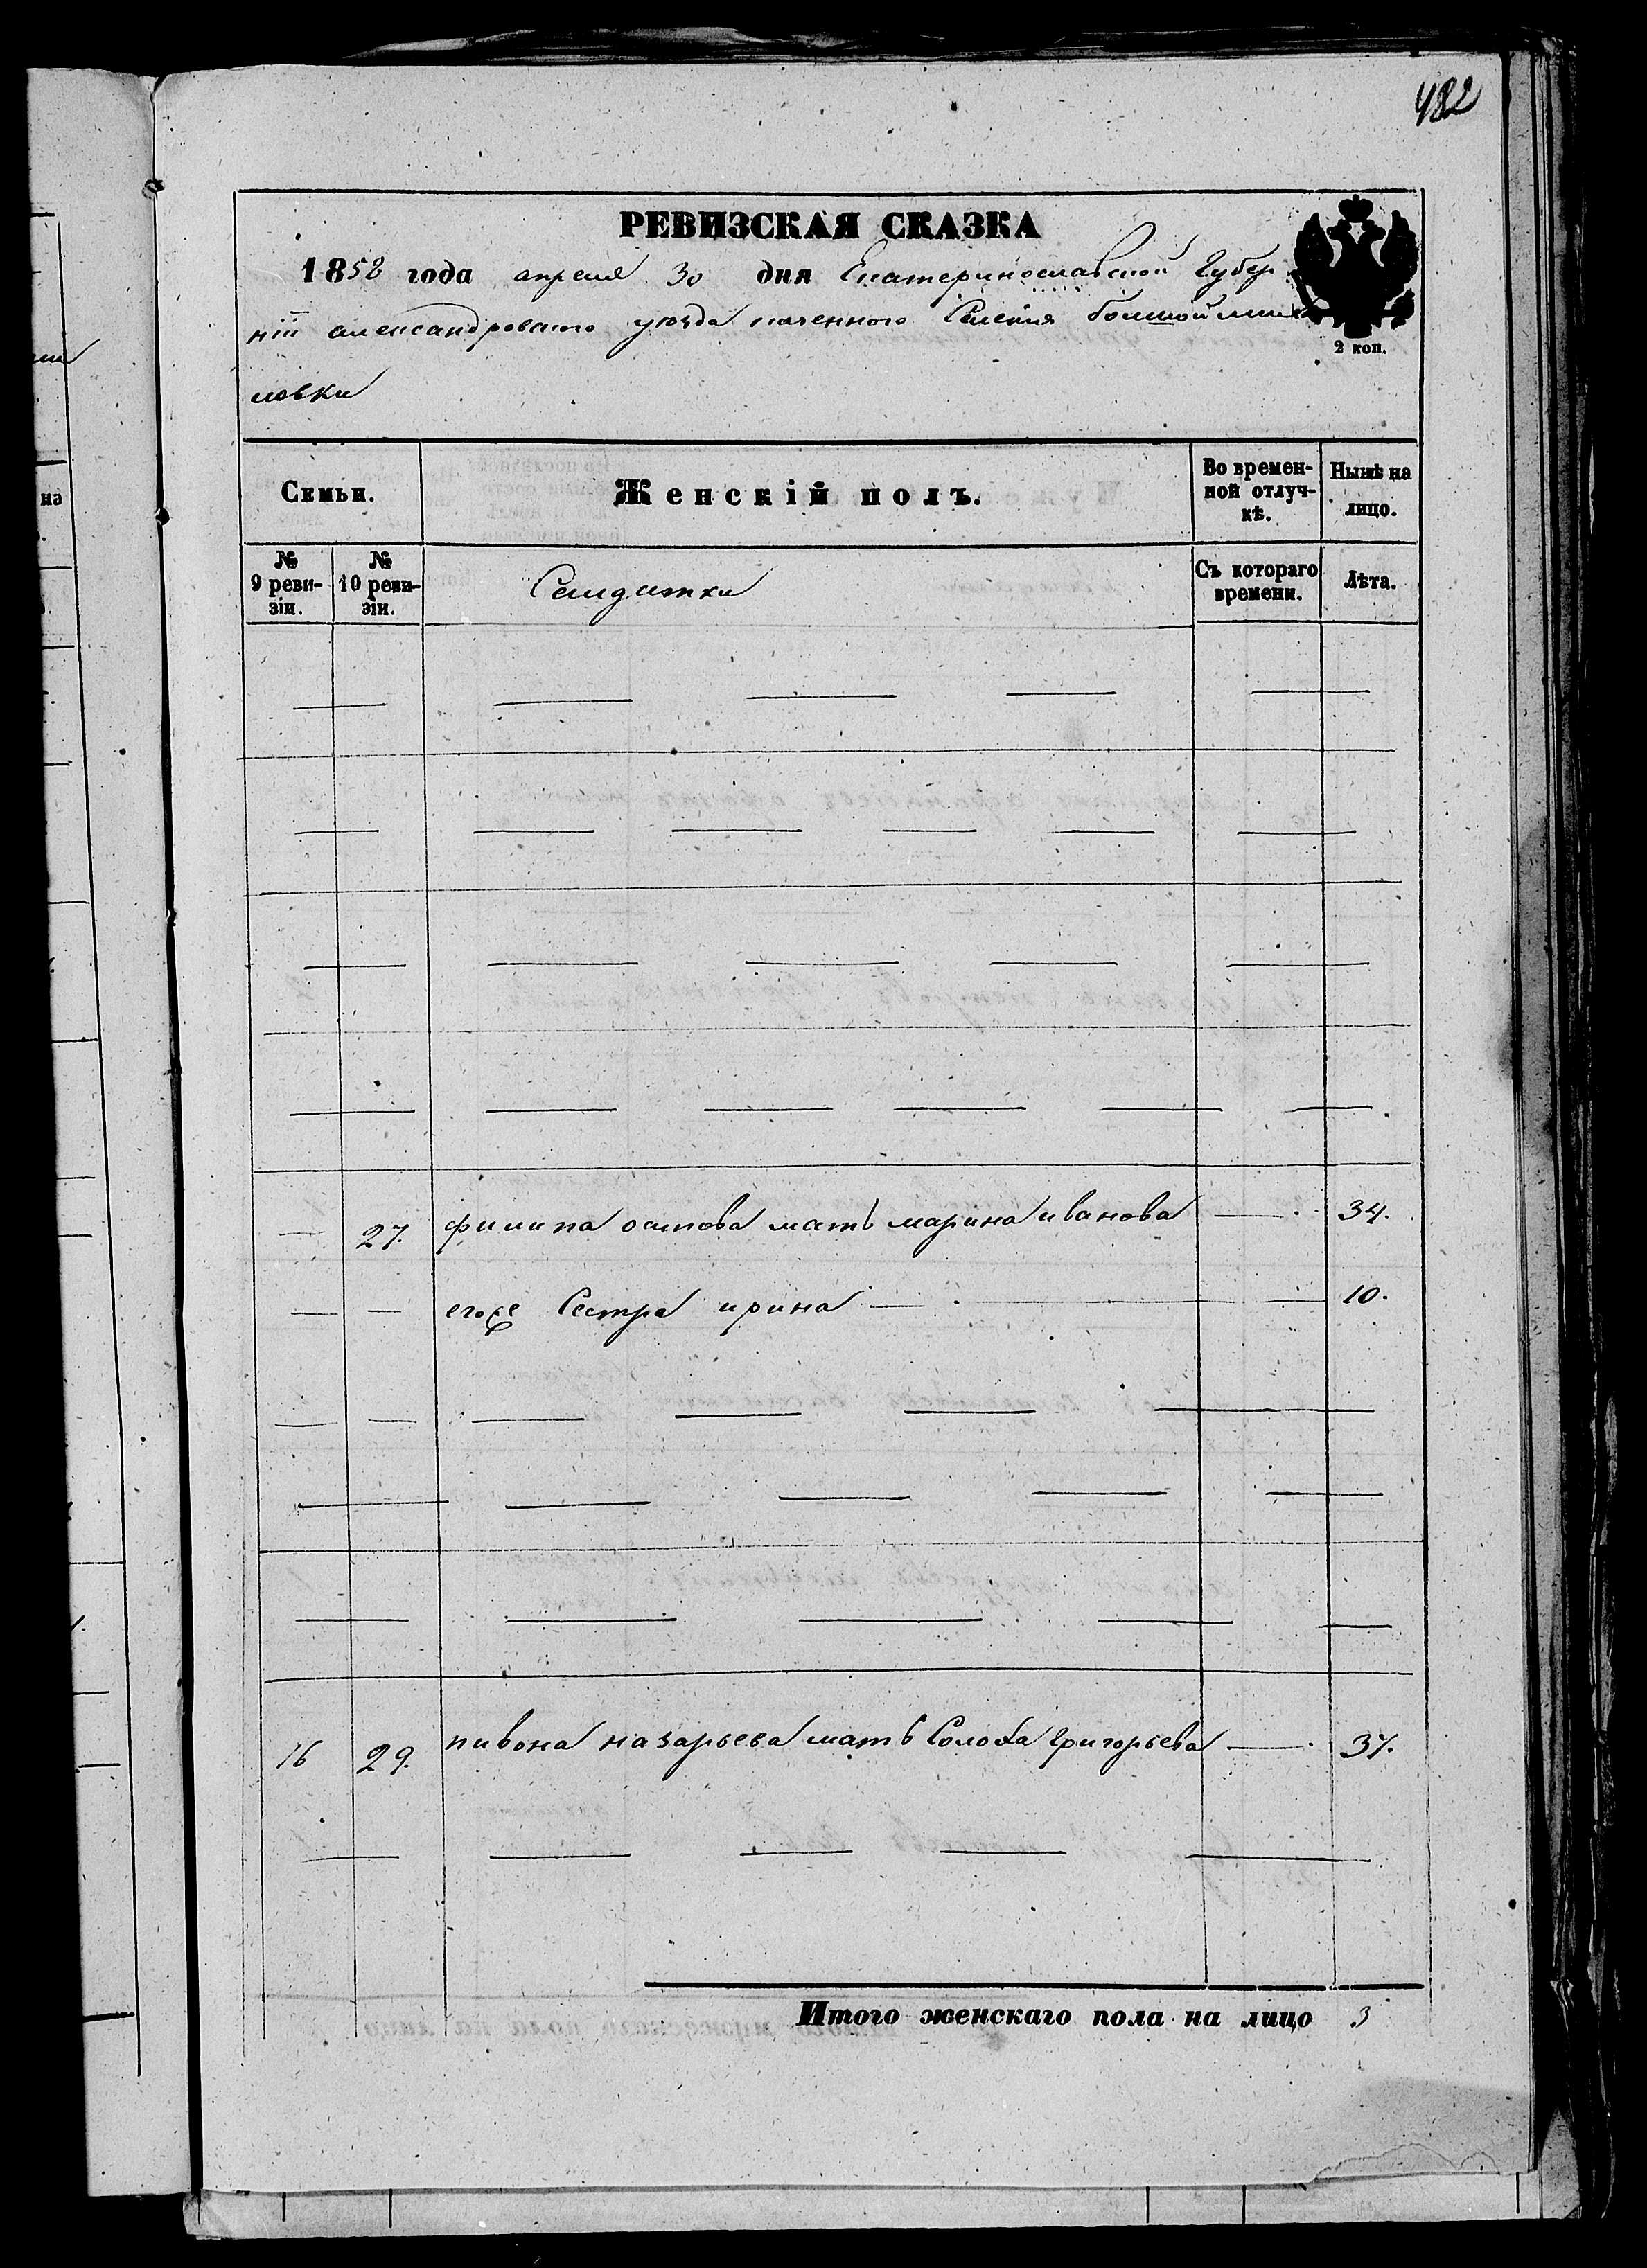 482
РЕВИЗСКАЯ СКАЗКА
1858 года апреля 30 дня Екатеринославской Губер
ніи александровского уѣзда казенного Селенія большой михай
ловки
2 коп.
Семьи.
Женскій полъ.
Во времен-
ной отлуч-
кѣ.
Нынѣ на
лицо.
№
9 реви-
зіи.
№
10 реви-
зіи.
Салдатки
Съ котораго
времени.
Лѣта.
27. филипа осипова мать марина иванова 34.
егоже Сестра ирина 10.
16 29. пивона назарьева мать Солоха Григорьева 37.
Итого женскаго пола на лицо 3
на